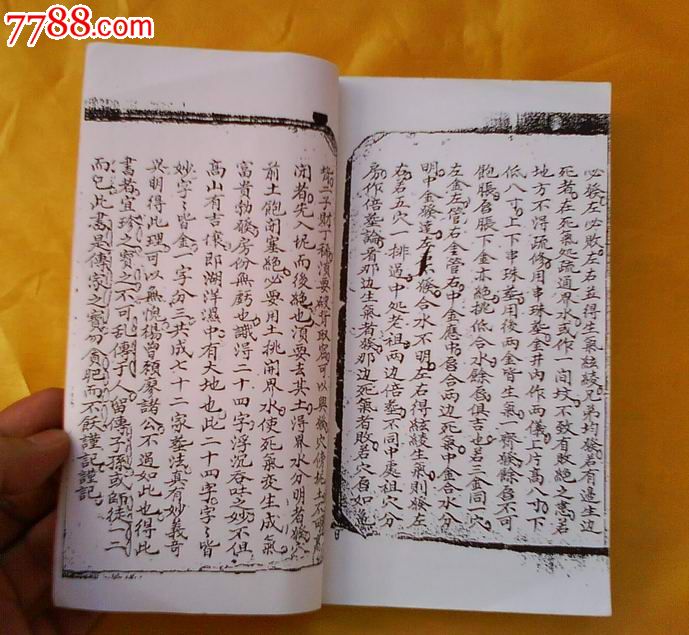 7788.com
必發左必敗左右並得生氣綾綾兄弟均發若有邊生邊
死者在死氣処疏通界水或作一間坟不致有敗絕之患若
地方不得疏修用串珠塟金井内作兩儀上片高八寸下
低八寸上下串珠塟用後兩金皆生氣一齊發餘皀不可
飽脹皀脹下金本絕挑低合水餘皀俱吉也弟三金同一穴
左金左管右金管右中金應中皀合兩边死氣中金合水分
明中金發達左 發合水不明左右得綾綾生氣則發左
右若五穴一排過中处老祖两边倍塟不同中處祖穴分
房作倍塟論者那边生氣者發那边死氣者敗弟穴自如
二子財丁稀須要 可以興發穴傍
閉者先入坭而後絕也須要去其土得界水分明者發
前土飽閉塞絕必要用土挑開界水使死氣变生成氣
富貴勃發房份無虧也識得二十四字浮沉吞吐之妙不但
高山有吉穴即湖洋濕中有大地也此二十四字字々皆
妙字々皆金一字分三共成七十二家塟法真有妙義奇
異明得此理可以無愧楊曾顏廖諸公不過如此也得此
書者宜珍之寶之不可乱傳于人留傳子孫或師徒一二
而已此書是傳家之寶勿負肥而不飫謹記謹記